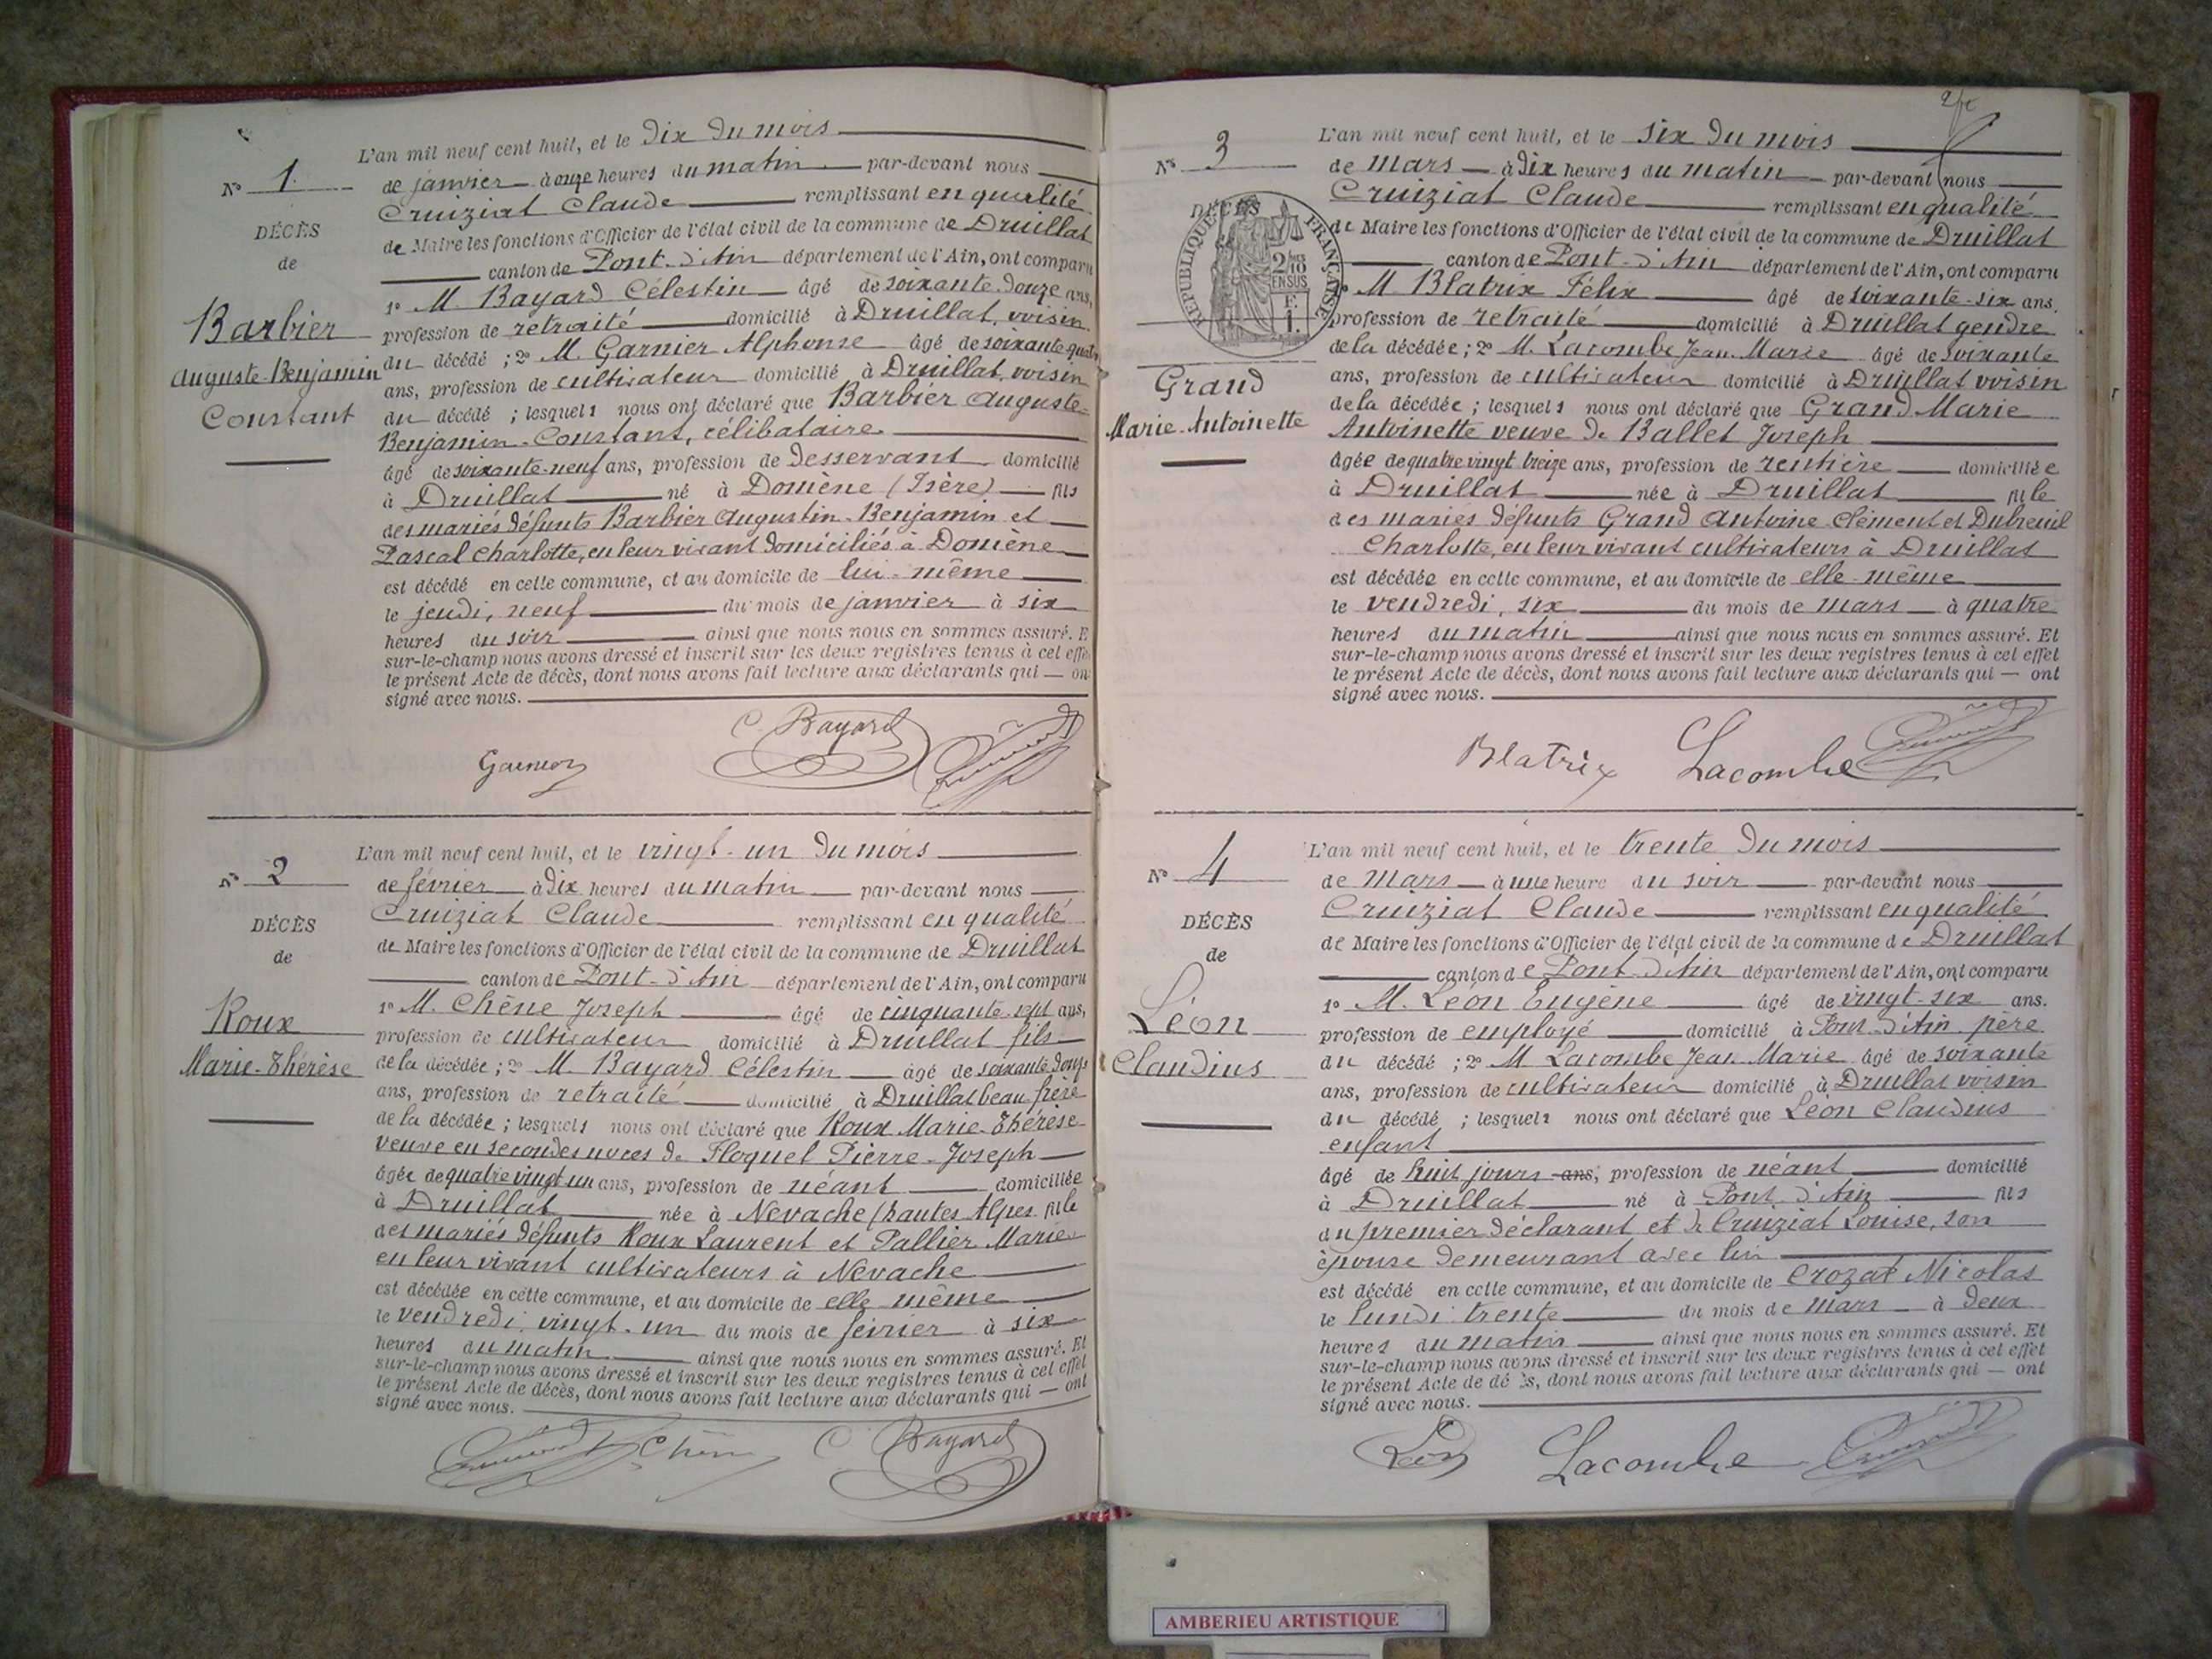 N° 1
DÉCÈS
de
Barbier
Auguste-Benjamin
Constant
L'an mil neuf cent huit, et le dix du mois
de janvier à onze heures du matin par-devant nous
Cruiziat Claude remplissant en qualité
de Maire les fonctions d'Officier de l'état civil de la commune de Druillat
canton de Pont-d'Ain département de l'Ain, ont comparu
1° M. Bayard Célestin âgé de soixante-douze ans,
profession de retraité domicilié à Druillat, voisin
du décédé ; 2° M. Garnier Alphonse âgé de soixante-quatre
ans, profession de cultivateur domicilié à Druillat, voisin
du décédé ; lesquels nous ont déclaré que Barbier Auguste-
Benjamin-Constant, célibataire
âgé de soixante-neuf ans, profession de desservant domicilié
à Druillat né à Domène (Isère) fils
des mariés défunts Barbier Augustin-Benjamin et
Pascal Charlotte, en leur vivant domiciliés à Domène
est décédé en cette commune, et au domicile de lui-même
le jeudi, neuf du mois de janvier à six
heures du soir ainsi que nous nous en sommes assuré. E
sur-le-champ nous avons dressé et inscrit sur les deux registres tenus à cet effe
le présent Acte de décès, dont nous avons fait lecture aux déclarants qui — on
signé avec nous.
Garnier C. Bayard
N° 2
DÉCÈS
de
Roux
Marie-Thérèse
L'an mil neuf cent huit, et le vingt-un du mois
de février à dix heures du matin par-devant nous
Cruiziat Claude remplissant en qualité
de Maire les fonctions d'Officier de l'état civil de la commune de Druillat
canton de Pont-d'Ain département de l'Ain, ont comparu
1° M. Chêne Joseph âgé de cinquante-sept ans,
profession de cultivateur domicilié à Druillat fils
de la décédée ; 2° M. Bayard Célestin âgé de soixante-douze
ans, profession de retraité domicilié à Druillat beau-frère
de la décédée ; lesquels nous ont déclaré que Roux Marie-Thérèse
veuve en secondes noces de Floquet Pierre-Joseph
âgée de quatre vingt un ans, profession de néant domiciliée
à Druillat née à Nevache (hautes Alpes fille
des mariés défunts Roux Laurent et Pallier Marie
en leur vivant cultivateurs à Nevache
est décédée en cette commune, et au domicile de elle même
le vendredi vingt-un du mois de février à six
heures du matin ainsi que nous nous en sommes assuré. Et
sur-le-champ nous avons dressé et inscrit sur les deux registres tenus à cet effet
le présent Acte de décès, dont nous avons fait lecture aux déclarants qui — ont
signé avec nous.
Chêne C. Bayard
N° 3
DÉCÈS
RÉPUBLIQUE FRANÇAISE
2/10 EN SUS
1 F.
Grand
Marie-Antoinette
L'an mil neuf cent huit, et le six du mois
de mars à dix heures du matin par-devant nous
Cruiziat Claude remplissant en qualité
de Maire les fonctions d'Officier de l'état civil de la commune de Druillat
canton de Pont-d'Ain département de l'Ain, ont comparu
M. Blatrix Félix âgé de soixante-six ans,
profession de retraité domicilié à Druillat gendre
de la décédée ; 2° M. Lacombe Jean-Marie âgé de soixante
ans, profession de cultivateur domicilié à Druillat voisin
de la décédée ; lesquels nous ont déclaré que Grand Marie
Antoinette veuve de Ballet Joseph
âgée de quatre vingt treize ans, profession de rentière domiciliée
à Druillat née à Druillat fille
des mariés défunts Grand Antoine Clément et Dubreuil
Charlotte, en leur vivant cultivateurs à Druillat
est décédée en cette commune, et au domicile de elle-même
le vendredi, six du mois de mars à quatre
heures du matin ainsi que nous nous en sommes assuré. Et
sur-le-champ nous avons dressé et inscrit sur les deux registres tenus à cet effet
le présent Acte de décès, dont nous avons fait lecture aux déclarants qui — ont
signé avec nous.
Blatrix Lacombe
N° 4
DÉCÈS
de
Léon
Claudius
L'an mil neuf cent huit, et le trente du mois
de mars à une heure du soir par-devant nous
Cruiziat Claude remplissant en qualité
de Maire les fonctions d'Officier de l'état civil de la commune de Druillat
canton de Pont-d'Ain département de l'Ain, ont comparu
1° M. Léon Eugène âgé de vingt-six ans.
profession de employé domicilié à Pont-d'Ain père
du décédé ; 2° M. Lacombe Jean Marie âgé de soixante
ans, profession de cultivateur domicilié à Druillat voisin
du décédé ; lesquels nous ont déclaré que Léon Claudius
enfant
âgé de huit jours ans, profession de néant domicilié
à Druillat né à Pont-d'Ain fils
du premier déclarant et de Cruiziat Louise, son
épouse demeurant avec lui
est décédé en cette commune, et au domicile de Crozat Nicolas
le lundi trente du mois de mars à deux
heures du matin ainsi que nous nous en sommes assuré. Et
sur-le-champ nous avons dressé et inscrit sur les deux registres tenus à cet effet
le présent Acte de décès, dont nous avons fait lecture aux déclarants qui — ont
signé avec nous.
Léon Lacombe
AMBERIEU ARTISTIQUE